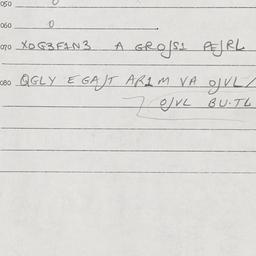 050 0
060 0
070 XOG3F1N3 A GROJS1 PEJRL
080 QGLY EGAJT AR1M VA OJVL/
OJVL BU·TL